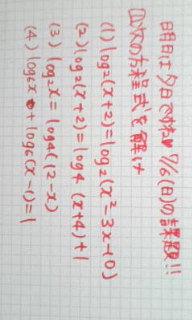 明日は夕日です 7/6(日)の課題!!
□次の方程式を解け
(1) log₂(x+2)=log₂(x²-3x-10)
(2) log₂(x+2)=log₄(x+4)+1
(3) log₂x=log₄(2-x)
(4) log₆x+log₆(x-1)=1